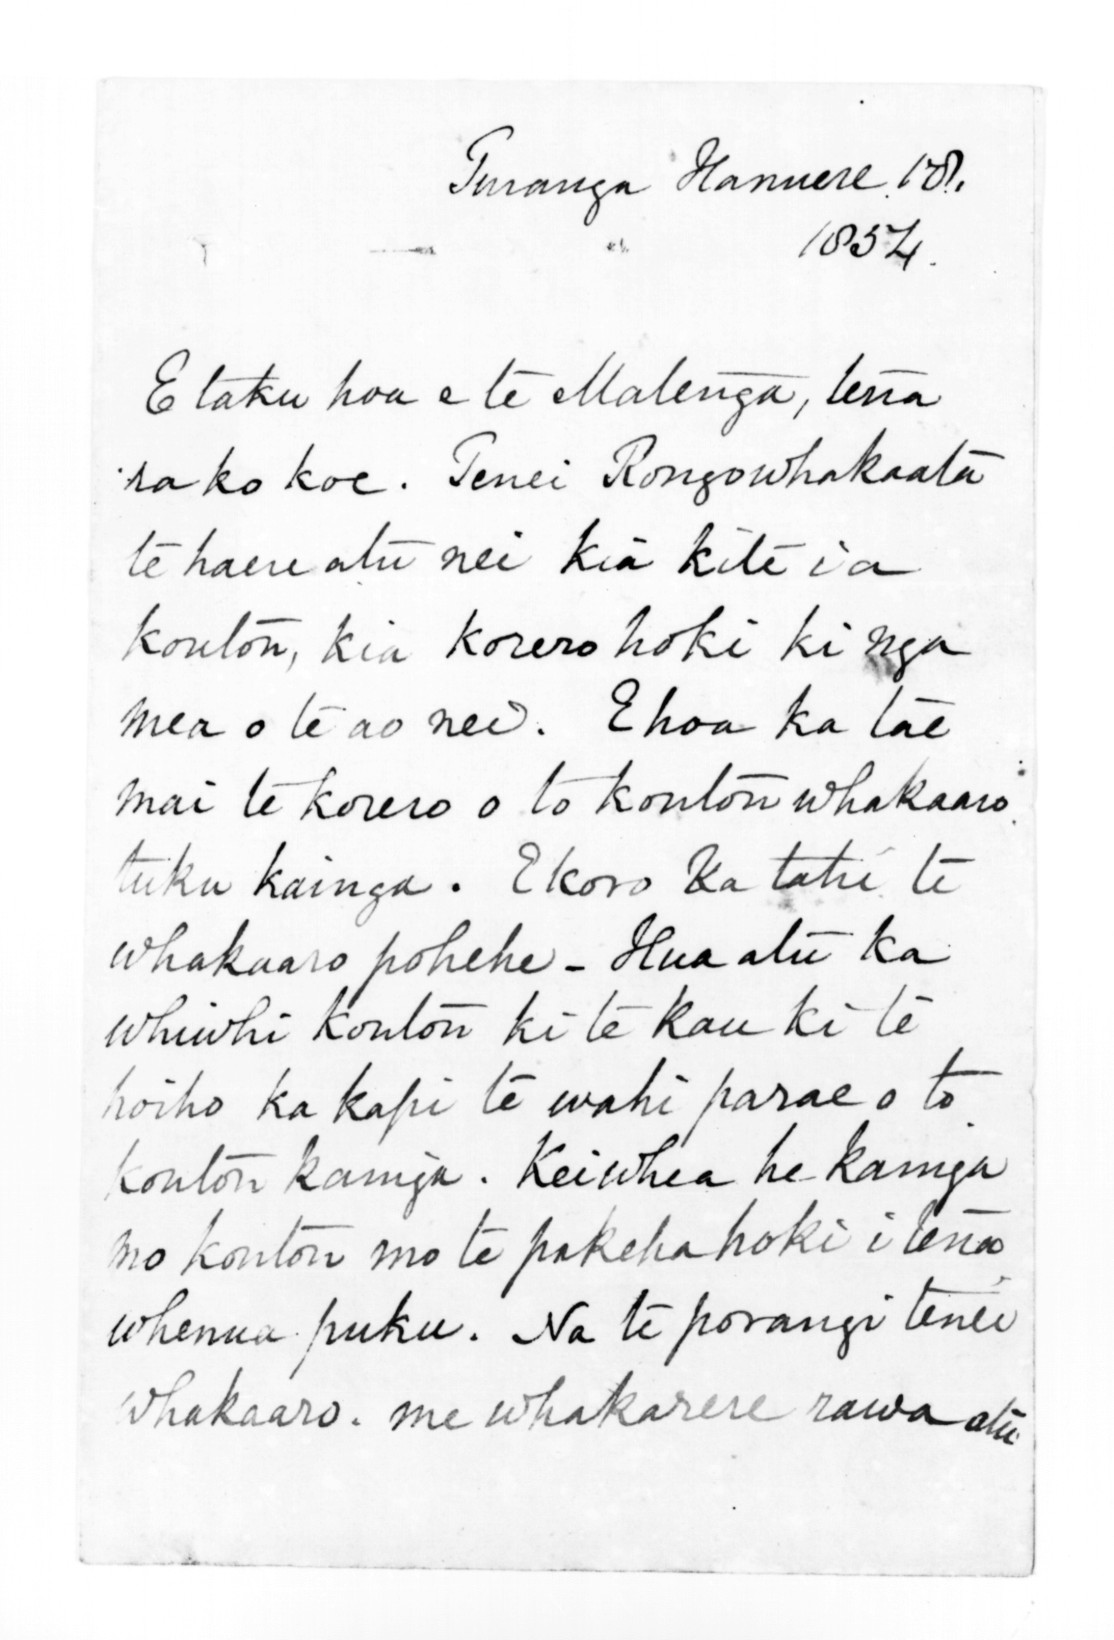 Turanga Hanuere 18.
1854.
E taku hoa e te Matenga, tena
ra ko koe. Tenei Rongowhakaata
te haere atu nei kia kite i a
koutou, kia korero hoki ki nga
mea o te ao nei. E hoa ka tae
mai te korero o to koutou whakaaro
tuku kainga. E koro Ka tahi te
whakaaro pohehe - Hua atu ka
whiwhi koutou ki te kau ki te
hoiho ka kapi te wahi parae o to
koutou kainga. Keiwhea he kainga
mo koutou mo te pakeha hoki i tena
whenua puku. Na te porangi tenei
whakaaro. me whakarere rawa atu